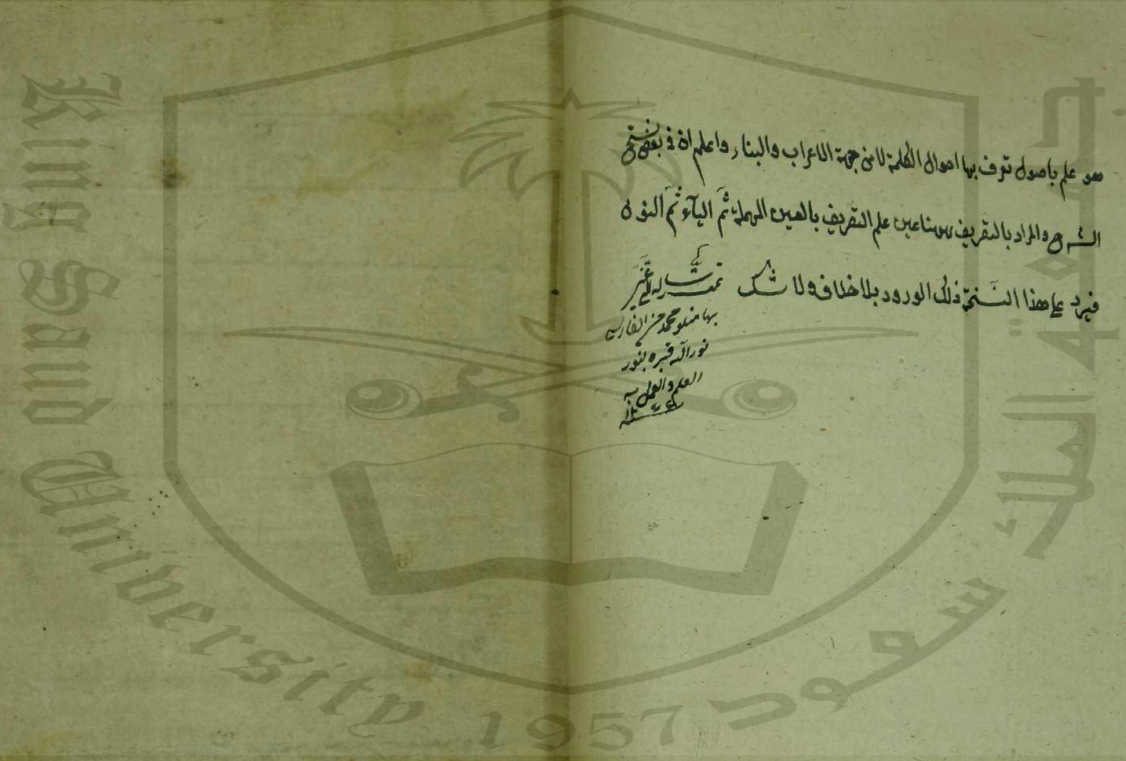 هو علم باصول تعرف بها احوال الكلمة لا من جهة الاعراب والبناء واعلم ان في بعض نسخ
الشرح والمراد بالتصريف ههنا عين علم التصريف بالعين المهملة ثم الياء ثم النون
فيرد على هذا النسخة ذلك الورود بلا خلاف ولا شك
تمت
محمد
نور الله قبره بنور
العلم والعمل به
King Saud University 1957
جامعة الملك سعود